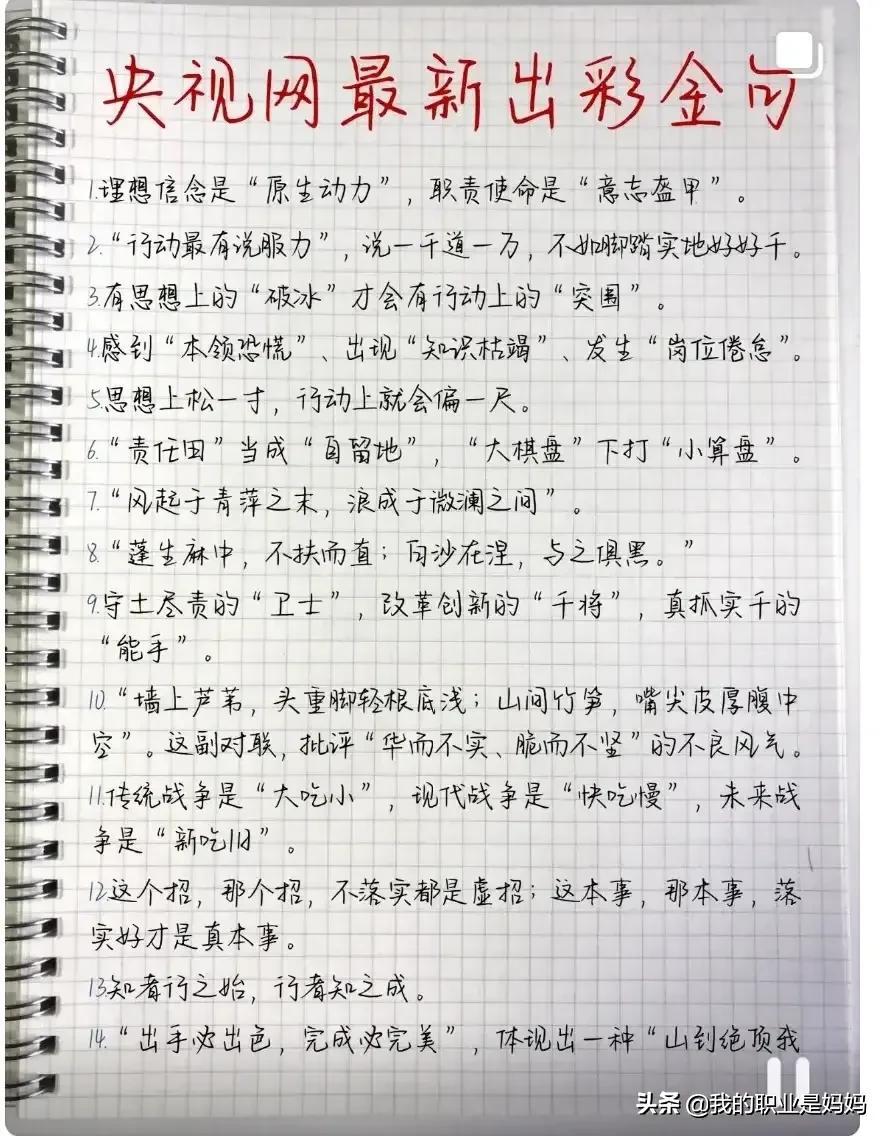 央视网最新出彩金句
1.理想信念是“原生动力”，职责使命是“意志盔甲”。
2.“行动最有说服力”，说一千道一万，不如脚踏实地好好干。
3.有思想上的“破冰”才会有行动上的“突围”。
4.感到“本领恐慌”、出现“知识枯竭”、发生“岗位倦怠”。
5.思想上松一寸，行动上就会偏一尺。
6.“责任田”当成“自留地”，“大棋盘”下打“小算盘”。
7.“风起于青萍之末，浪成于微澜之间”。
8.“蓬生麻中，不扶而直；白沙在涅，与之俱黑。”
9.守土尽责的“卫士”，改革创新的“干将”，真抓实干的
“能手”。
10.“墙上芦苇，头重脚轻根底浅；山间竹笋，嘴尖皮厚腹中
空”。这副对联，批评“华而不实、脆而不坚”的不良风气。
11.传统战争是“大吃小”，现代战争是“快吃慢”，未来战
争是“新吃旧”。
12.这个招，那个招，不落实都是虚招；这本事，那本事，落
实好才是真本事。
13.知者行之始，行者知之成。
14.“出手必出色，完成必完美”，体现出一种“山到绝顶我
头条 @我的职业是妈妈